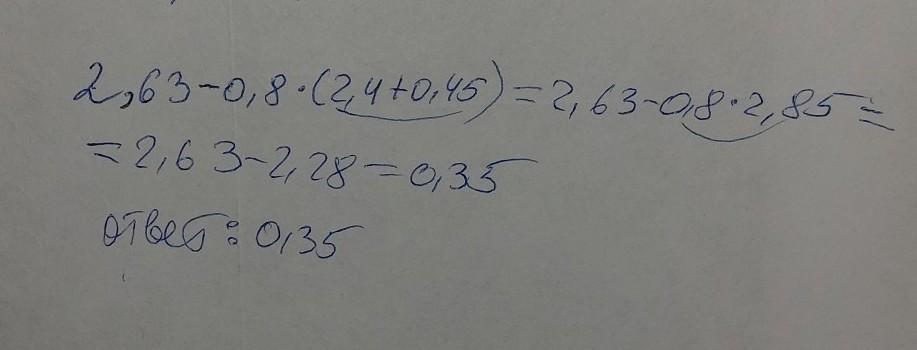 2,63-0,8·(2,4+0,45)=2,63-0,8·2,85=
=2,63-2,28=0,35
ответ: 0,35